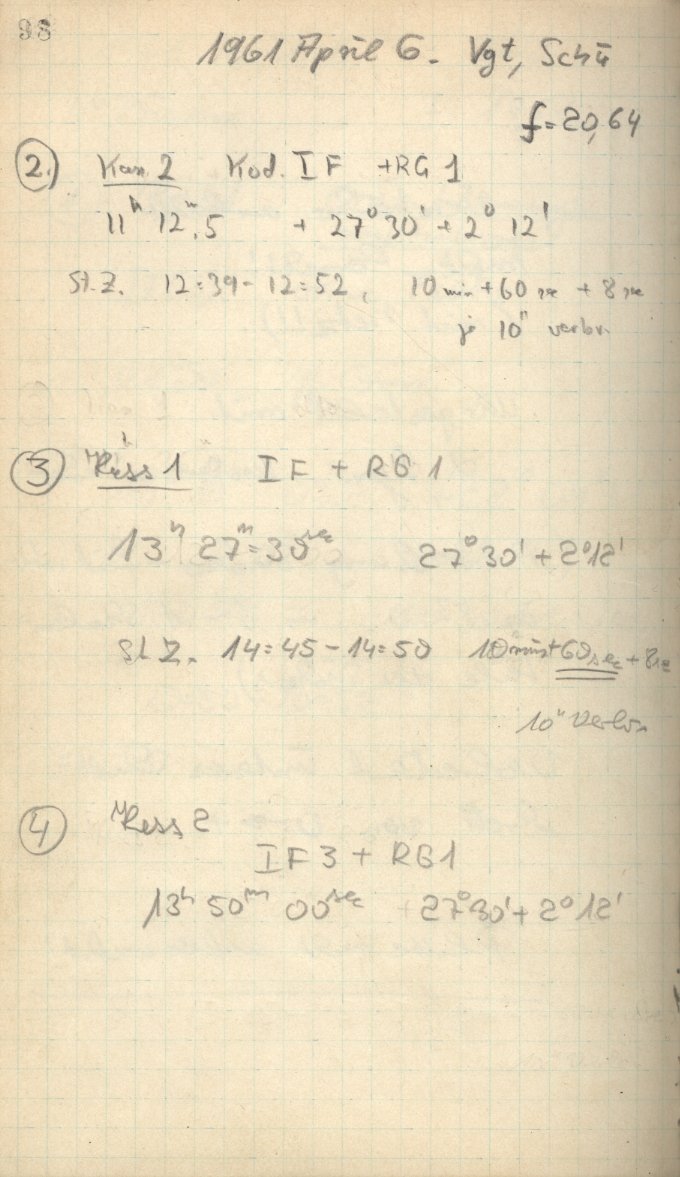 98
1961 April 6. Vgt, Schü
f=20,64
2.) Kas 2 Kod. I F +RG 1
11h 12m.5 + 27° 30' + 2° 12'
St.Z. 12=39 - 12=52, 10 min + 60 sec + 8 sec
je 10" verbr.
3 Kass 1 I F + RG 1
13h 27m=30sec 27° 30' + 2° 12'
St Z. 14=45 - 14=50 10 min + 60 sec + 8 sec
10" Verbr.
4 Kass 2
I F 3 + RG 1
13h 50m 00sec + 27° 30' + 2° 12'